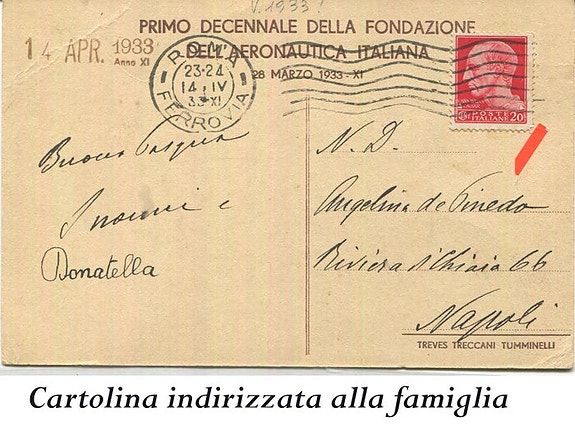 V. 1933!
PRIMO DECENNALE DELLA FONDAZIONE
14 APR. 1933
Anno XI
DELL'AERONAUTICA ITALIANA
28 MARZO 1933-XI
ROMA
23-24
14 IV
33 XI
FERROVIA
POSTE
ITALIANE
20
Buona Pasqua
N. D.
Angelina de Pinedo
Donatella
Riviera di Chiaia 66
Napoli
TREVES TRECCANI TUMMINELLI
Cartolina indirizzata alla famiglia